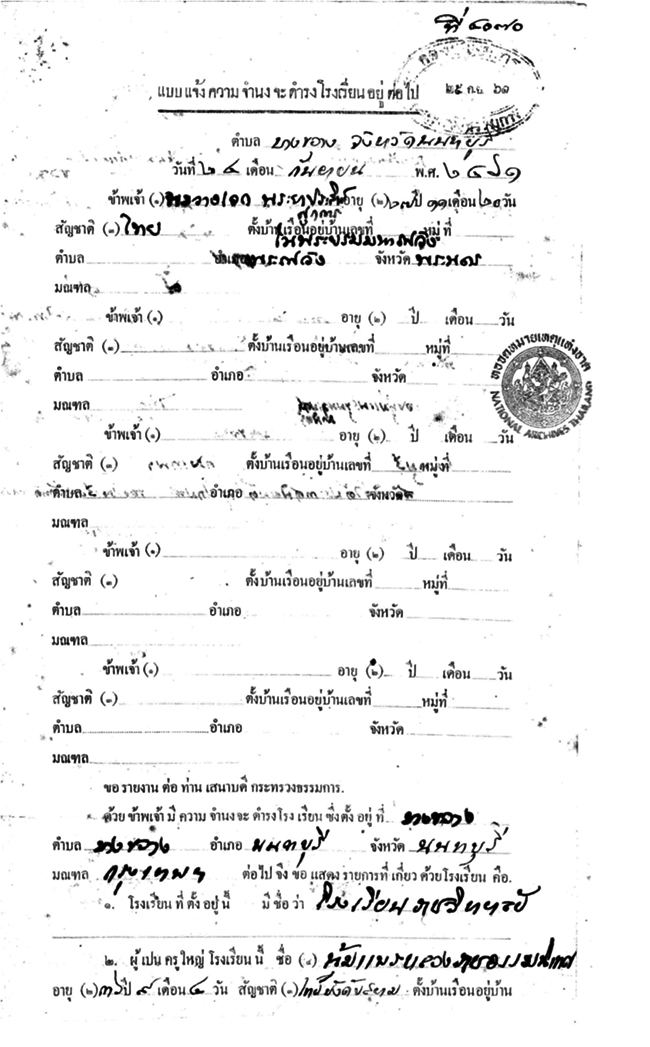 ที่ ๔๐๗๐
๒๕ ก.ย. ๖๑
แบบแจ้งความจำนงจะดำรงโรงเรียนอยู่ต่อไป
ตำบล บางขวาง จังหวัดนนทบุรี
วันที่ ๒๔ เดือน กันยายน พ.ศ. ๒๔๖๑
ข้าพเจ้า (๑) อายุ (๒) ๒๗ ปี ๑๑ เดือน ๒๐ วัน
สัญชาติ (๓) ไทย ตั้งบ้านเรือนอยู่บ้านเลขที่ หมู่ที่
ในพระบรมมหาราชวัง
ตำบล อำเภอ พระราชวัง จังหวัด พระนคร
มณฑล
ข้าพเจ้า (๑) อายุ (๒) ปี เดือน วัน
สัญชาติ (๓) ตั้งบ้านเรือนอยู่บ้านเลขที่ หมู่ที่
หอจดหมายเหตุแห่งชาติ
NATIONAL ARCHIVES THAILAND
ตำบล อำเภอ จังหวัด
มณฑล
ข้าพเจ้า (๑) อายุ (๒) ปี เดือน วัน
สัญชาติ (๓) ตั้งบ้านเรือนอยู่บ้านเลขที่ หมู่ที่
ตำบล อำเภอ จังหวัด
มณฑล
ข้าพเจ้า (๑) อายุ (๒) ปี เดือน วัน
สัญชาติ (๓) ตั้งบ้านเรือนอยู่บ้านเลขที่ หมู่ที่
ตำบล อำเภอ จังหวัด
มณฑล
ข้าพเจ้า (๑) อายุ (๒) ปี เดือน วัน
สัญชาติ (๓) ตั้งบ้านเรือนอยู่บ้านเลขที่ หมู่ที่
ตำบล อำเภอ จังหวัด
มณฑล
ขอรายงานต่อท่านเสนาบดีกระทรวงธรรมการ.
ด้วยข้าพเจ้ามีความจำนงจะดำรงโรงเรียนซึ่งตั้งอยู่ที่ บางขวาง
ตำบล บางขวาง อำเภอ นนทบุรี จังหวัด นนทบุรี
มณฑล กรุงเทพฯ ต่อไป จึงขอแสดงรายการที่เกี่ยวด้วยโรงเรียน คือ.
๑. โรงเรียนที่ตั้งอยู่นี้ มีชื่อว่า โรงเรียนราชวิทยาลัย
๒. ผู้เปนครูใหญ่โรงเรียนนี้ ชื่อ (๑)
อายุ (๒) ๓๖ ปี ๙ เดือน ๔ วัน สัญชาติ (๓) ตั้งบ้านเรือนอยู่บ้าน